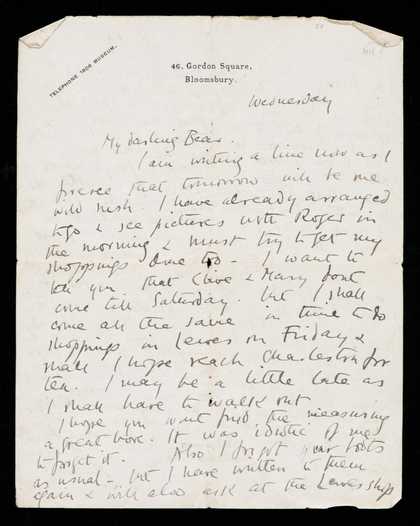 TELEPHONE 1608 MUSEUM.
46, Gordon Square,
Bloomsbury.
Wednesday
My darling Bear.
I am writing a line now as I
foresee that tomorrow will be one
wild rush. I have already arranged
to go & see pictures with Roger in
the morning & must try to get my
shoppings done too - I want to
tell you that Clive & Mary dont
come till Saturday. but I shall
come all the same in time to do
shoppings in Lewes on Friday &
shall I hope reach Charleston for
tea. I may be a little late as
I shall have to walk out
I hope you wont find the measuring
a great bore. It was idiotic of me
to forget it. Also I forgot your boots
as usual - but I have written to them
again & will also ask at the Lewes shop